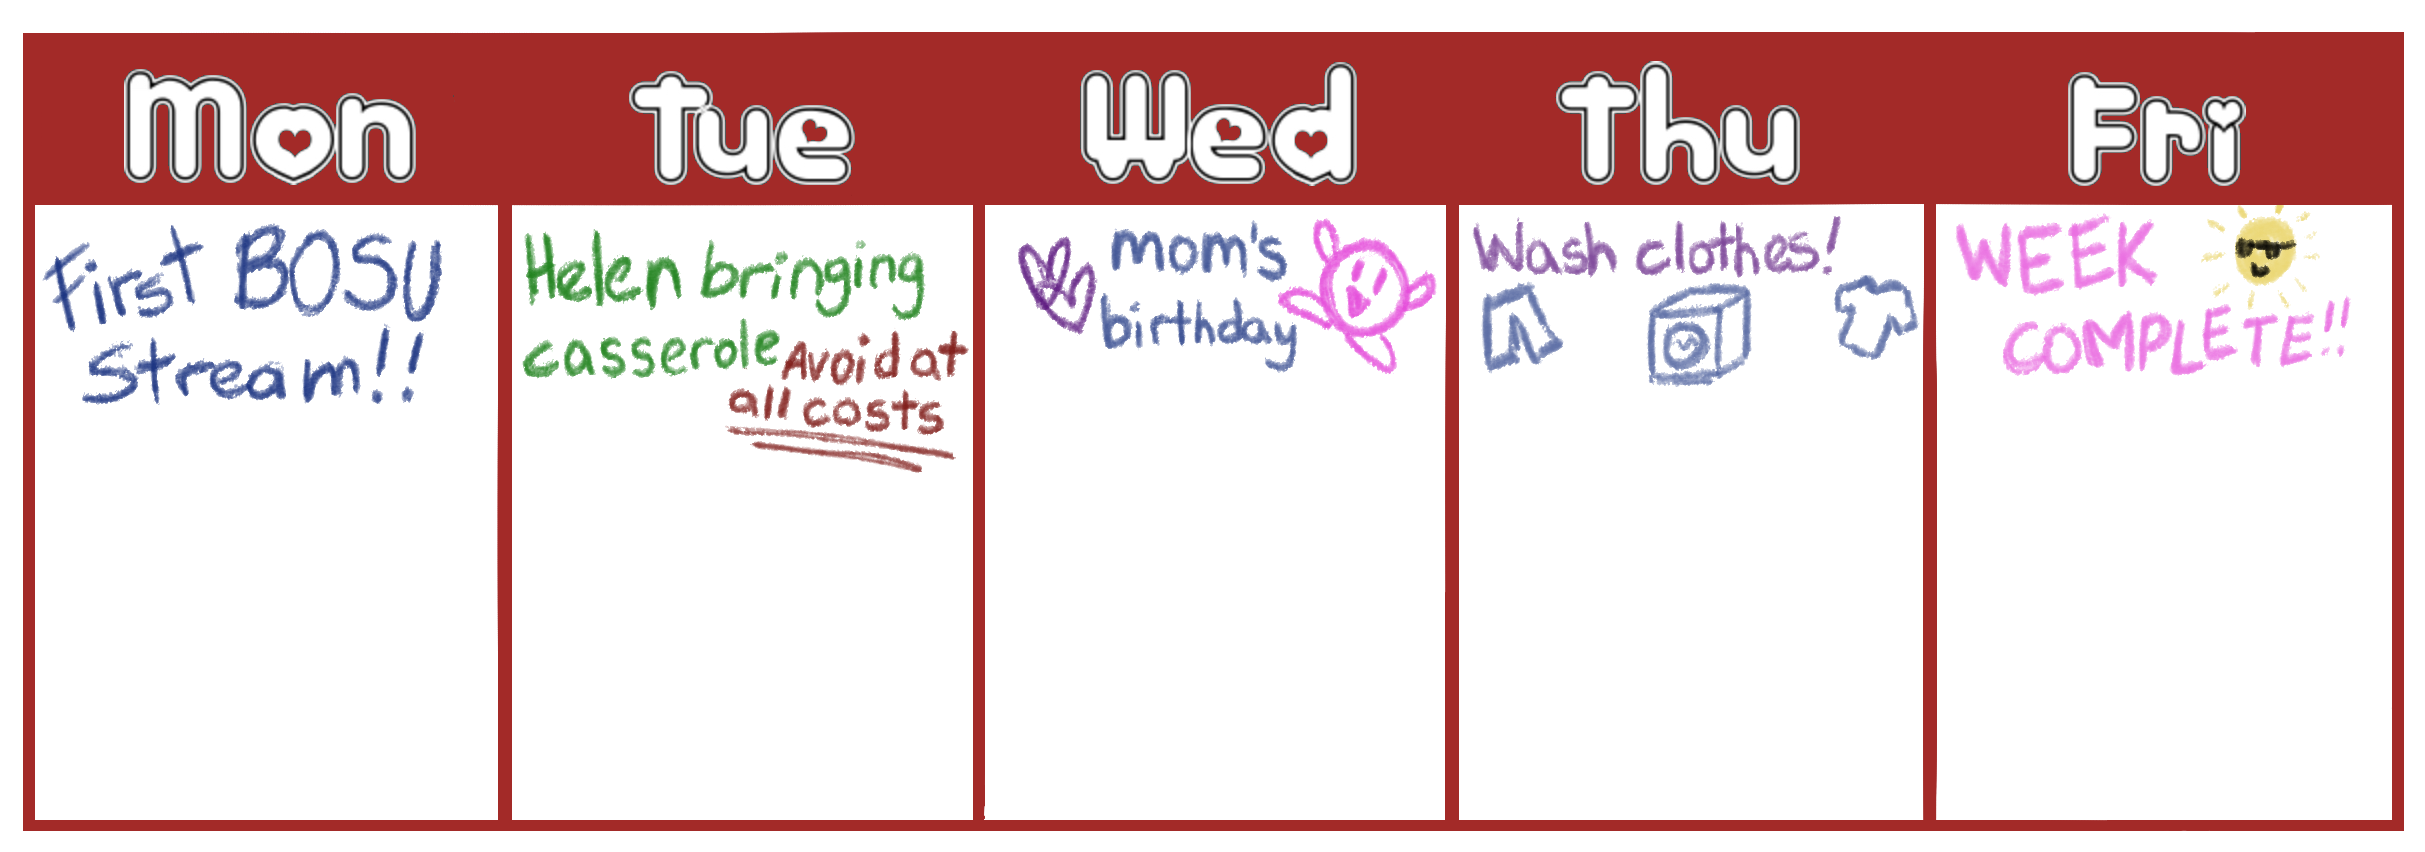 Mon
Tue
Wed
Thu
Fri
First BOSU
Stream!!
Helen bringing
casserole
Avoid at
all costs
mom's
birthday
Wash clothes!
WEEK
COMPLETE!!